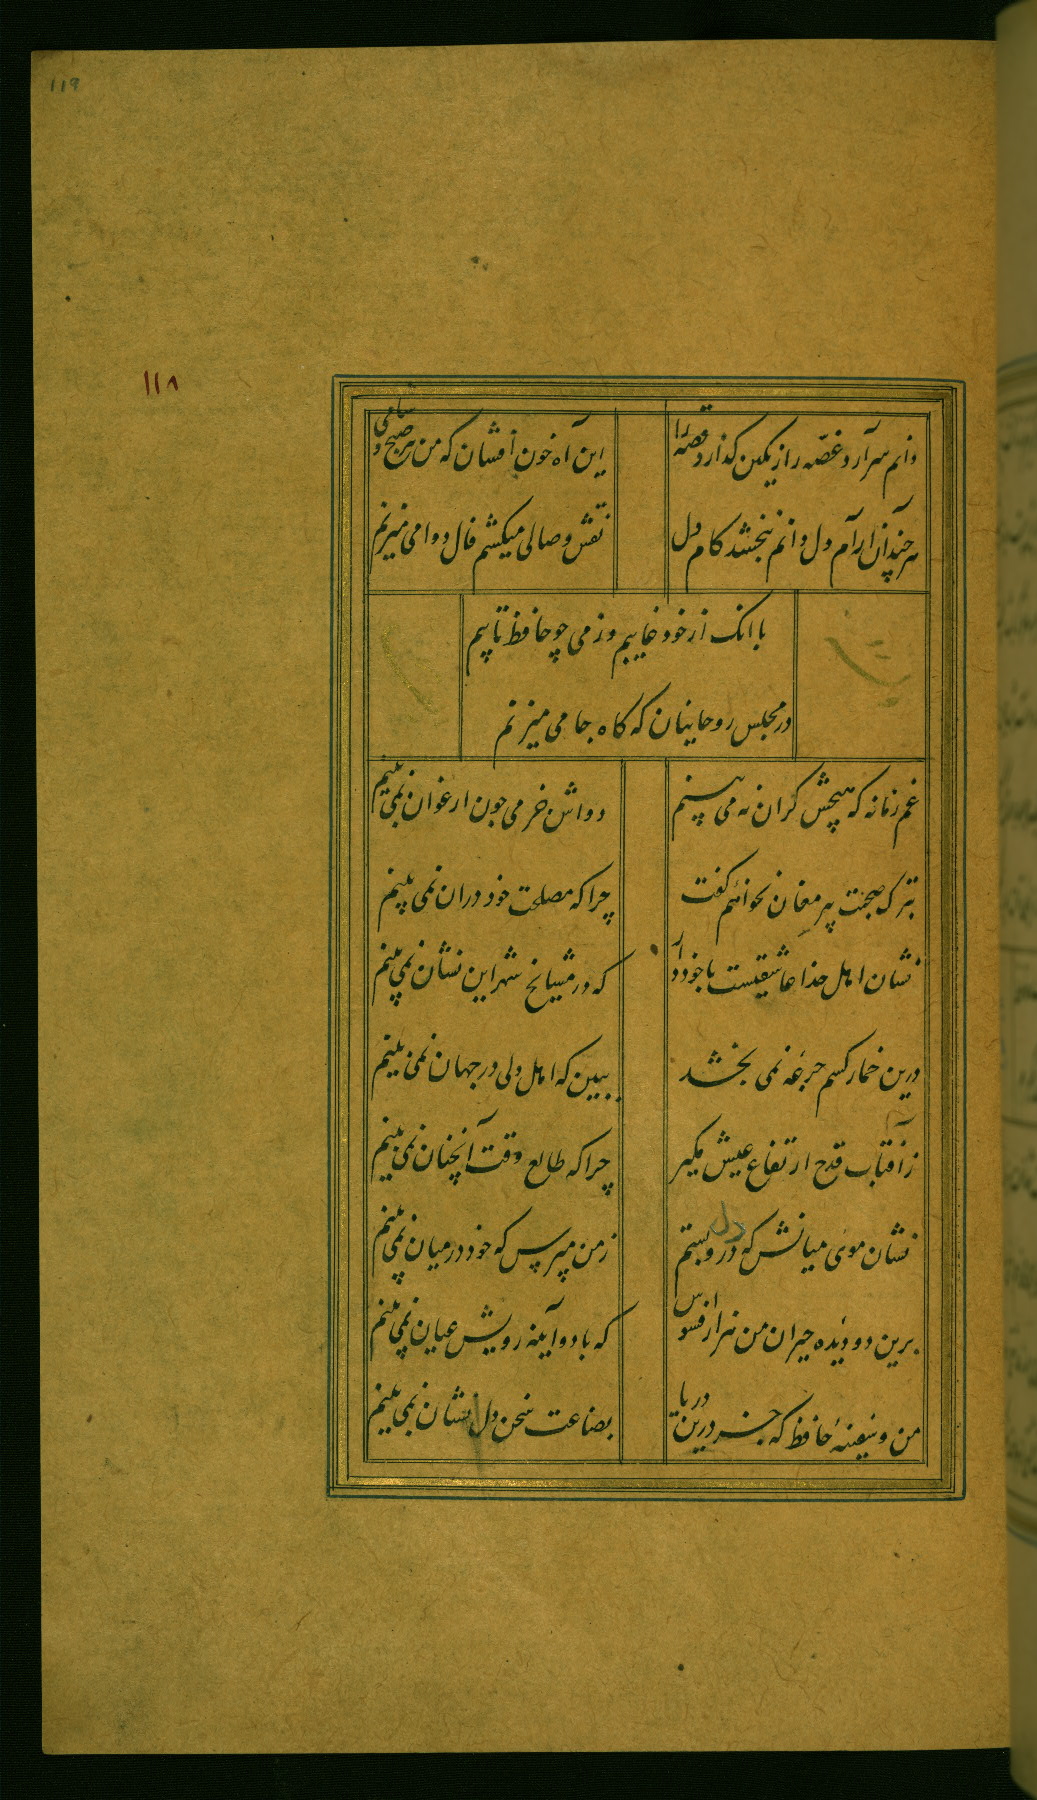 119
١١٨
دانم سرآرد غصّه را زیکین کذارد قصّه را
این آه خون افشان که من هر صبح و شامی
هرچند آن آرام دل دانم نبخشد کام دل
نقش وصالی میکشم فال دوامی میزنم
با انک از خود غایبم وز می چو حافظ تایبم
در مجلس روحانیان که کاه جامی میزنم
غم زمانه که هیچش کران نه می بینم
دواش خز می چون ارغوان نمی بینم
بترک صحبت پیر مغان نخواهم کفت
چرا که مصلحت خود دران نمی بینم
نشان اهل خدا عاشقیست با خود دار
که در مشایخ شهر این نشان نمی بینم
درین خمار کسم جرعه نمی بخشد
ببین که اهل دلی در جهان نمی بینم
ز آفتاب قدح ارتفاع عیش مکیر
چرا که طالع وقت آنچنان نمی بینم
نشان موی میانش که دل درو بستم
زمن مپرس که خود در میان نمی بینم
برین دو دیده حیران من هزار افسوس
که با دو آینه رویش عیان نمی بینم
من و سفینهٔ حافظ که جز درین دریا
بضاعت سخن دل نشان نمی بینم